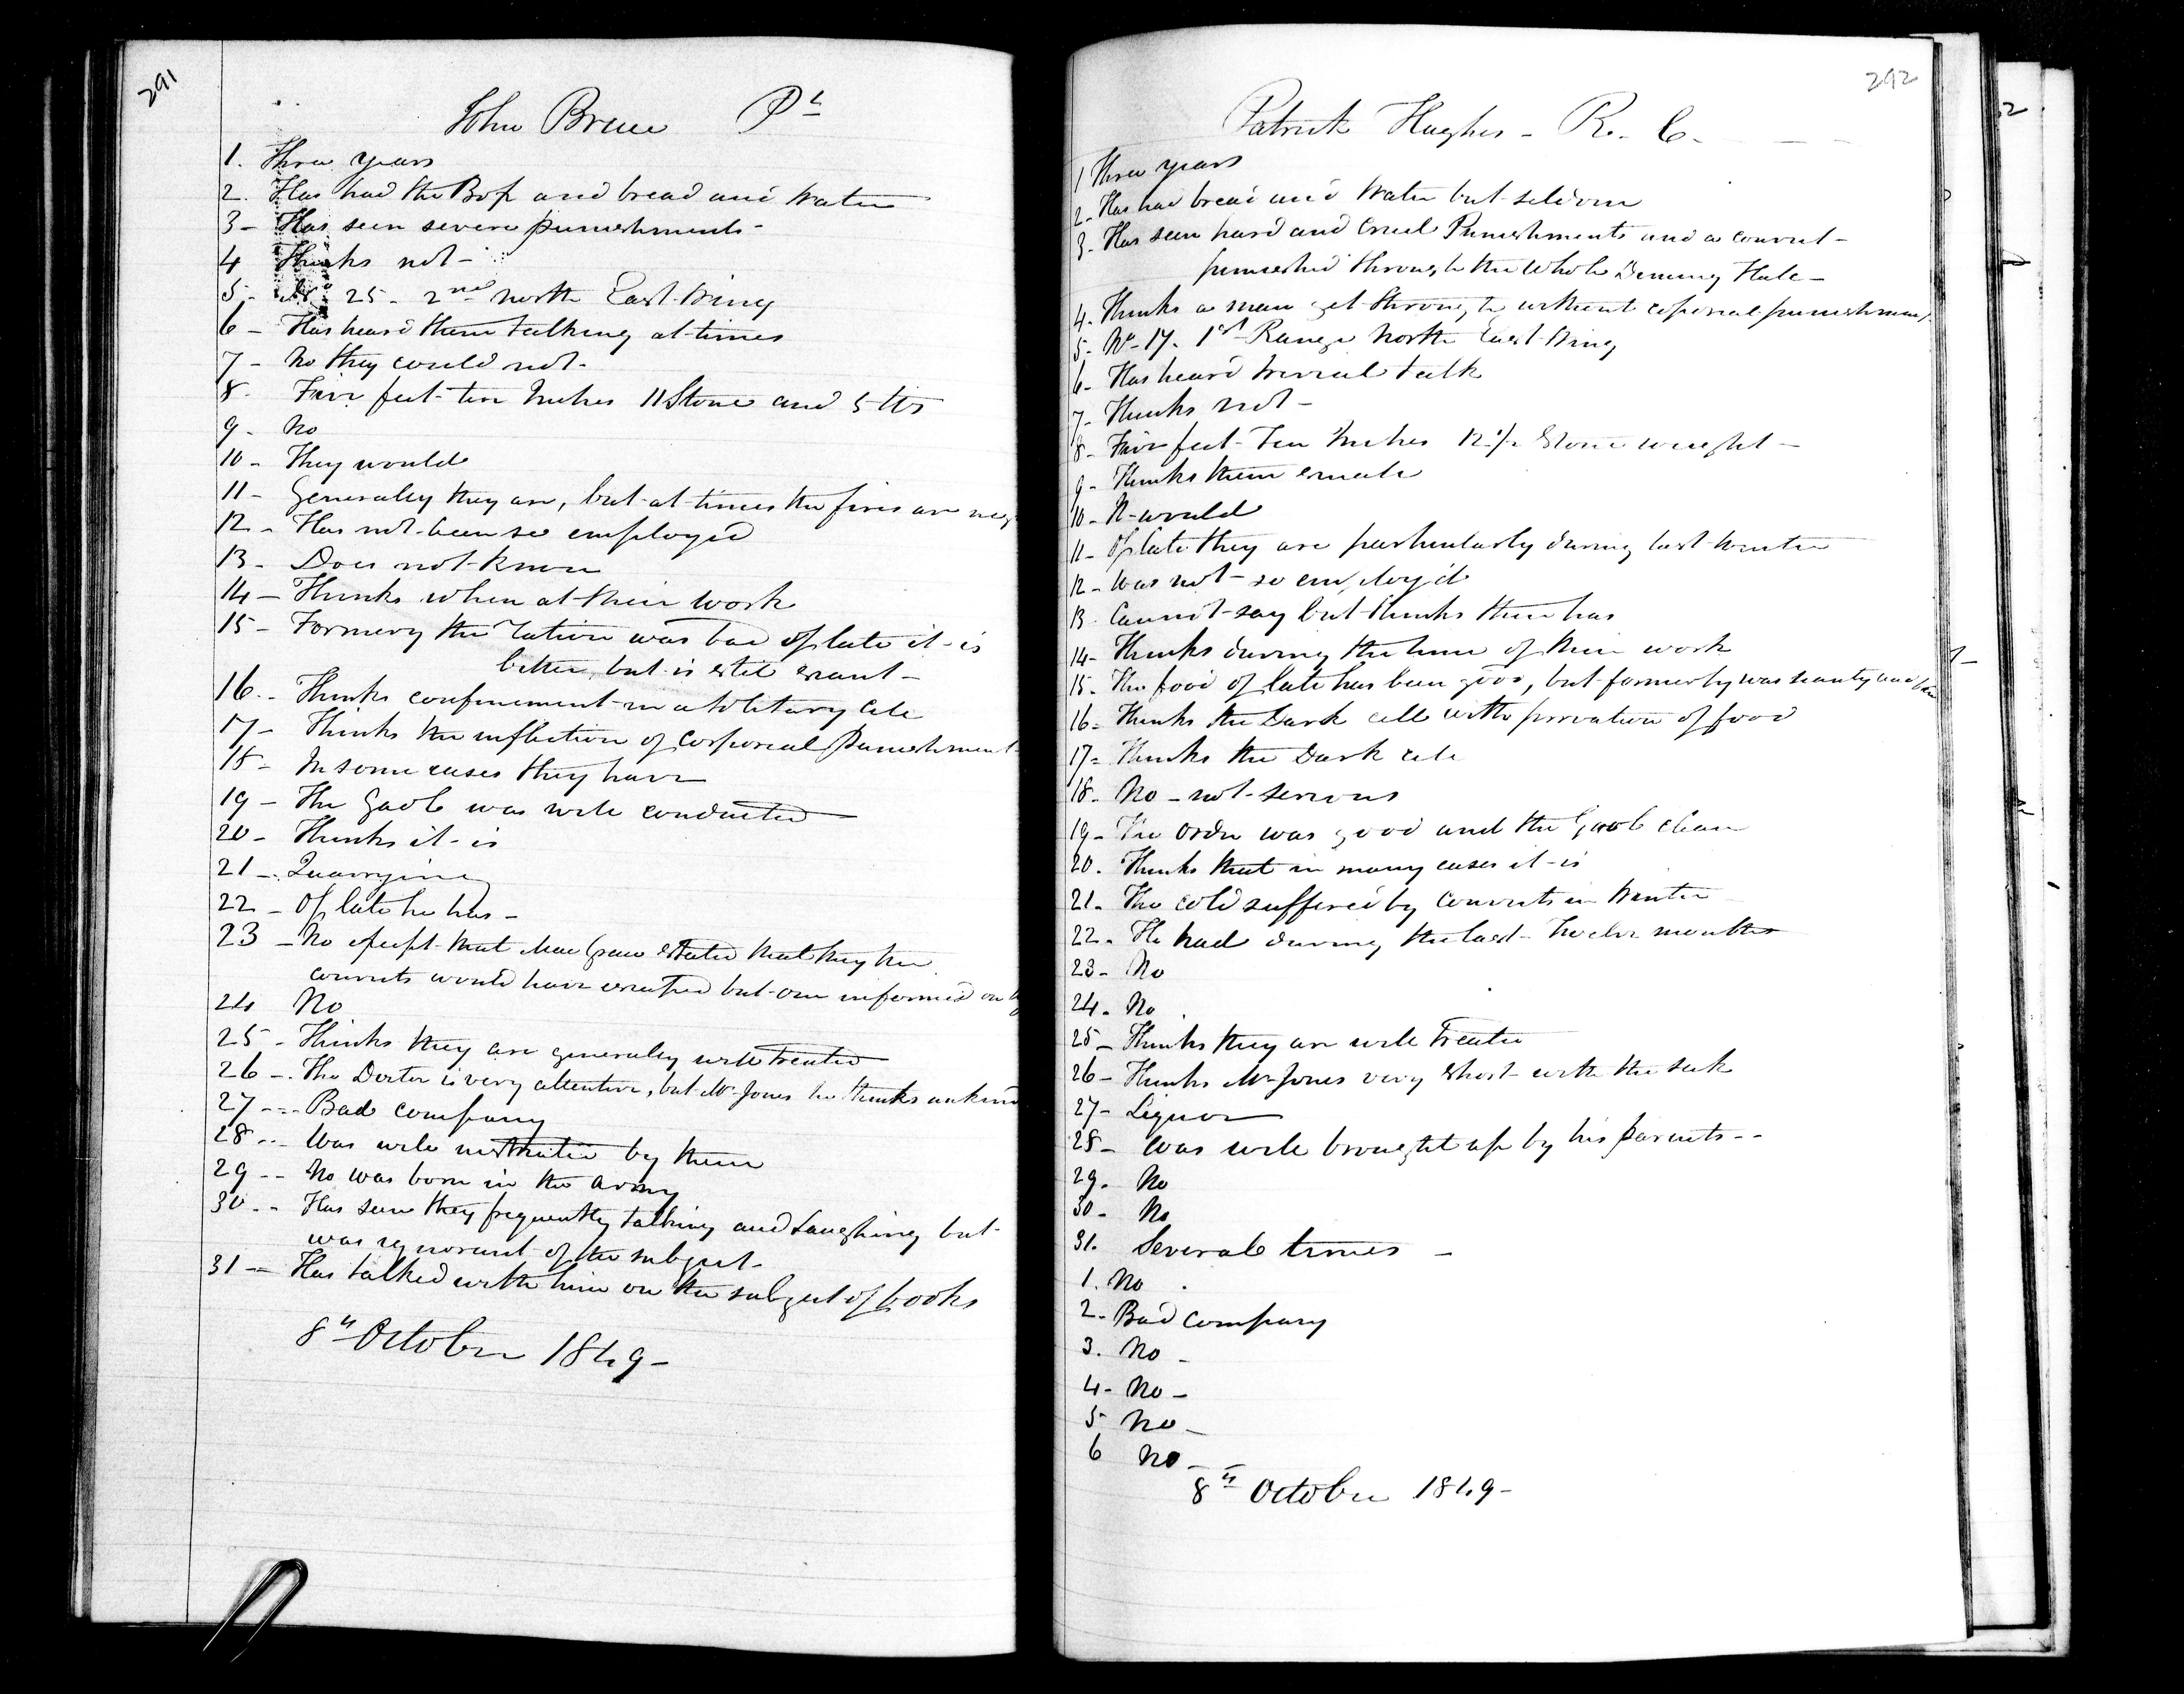 291
John Bruce Pt
1. Three years
2. Has had the Box and bread and water
3 - Has seen severe punishments -
4 Thinks not -
5 - No 25 - 2nd North East Wing
6 - Has heard them talking at times
7 - No they could not -
8. Five feet ten Inches 11 Stone and 5 lbs
9 - No
10 - They would
11 - Generally they are, but at times the fires are neg
12 - Has not been so employed
13 - Does not know
14 - Thinks when at their work
15 - Formery the ration was bad of late it is
better, but is still scant -
16 - Thinks confinement in a solitary cell
17 - Thinks the infliction of Corporeal Punishment
18 - In some cases they have
19 - The Gaol was well conducted
20 - Thinks it is
21 - Quarrying
22 - Of late he has -
23 - No except that MacGraw stated that they the
convicts would have escaped but one informed on
24 No
25 - Thinks they are generally well treated
26 - The Doctor is very attentive, but Mr Jones he thinks unkind
27 - Bad company
28 - Was well instructed by them
29 - No was born in the army
30 - Has seen they frequently talking and Laughing but
was ignorant of the subject -
31 - Has talked with him on the subject of books
8th October 1849 -
292
Patrick Hughes - R. C.
1 Three years
2 - Has had bread and water but seldom
3 - Has seen hard and Cruel Punishments and a convict
punished through the whole Dinning Hall -
4. Thinks a man get through without coporeal punishment
5 - No 17. 1st Range North East Wing
6 - Has heard trivial talk
7 - Thinks not -
8 - Five feet Ten Inches 12 1/2 Stone weight -
9 - Thinks them small
10 - It would
11 - Of late they are particularly during last winter
12 - Was not so employ'd
13 - Cannot say but thinks there has
14 - Thinks during the time of their work
15 - The food of late has been good, but formerly was scanty and
16 - Thinks the Dark cell with privation of food
17 - Thinks the Dark cell
18 - No - not serious
19 - The order was good and the Gaol clean
20. Thinks that in many cases it is
21. The cold suffered by convicts in Winter
22 - He had during the last twelve months
23 - No
24 - No
25 - Thinks they are well Treated
26 - Thinks Mr Jones very short with the sick
27 - Liquor
28 - Was well brought up by his parents - -
29. No
30 - No
31. Several times -
1. No
2 - Bad company
3. No -
4 - No -
5 No -
6 No -
8th October 1849 -